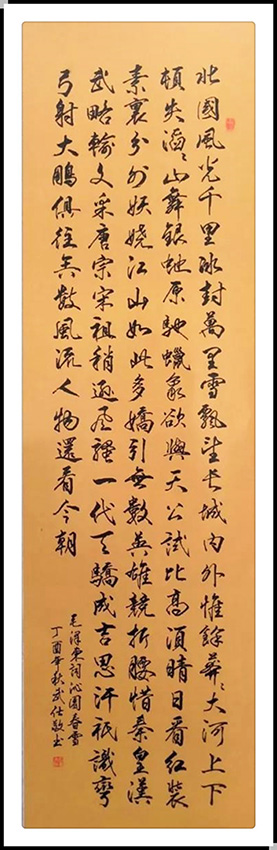 北國風光千里冰封萬里雪飄望長城內外惟餘莽々大河上下
頓失滔々山舞銀蛇原馳蠟象欲與天公試比高須晴日看紅裝
素裹分外妖嬈江山如此多嬌引無數英雄競折腰惜秦皇漢
武略輸文采唐宗宋祖稍遜風騷一代天驕成吉思汗祇識彎
弓射大鵬俱往矣數風流人物還看今朝
毛澤東詞沁園春雪
丁酉年秋武仕敬書